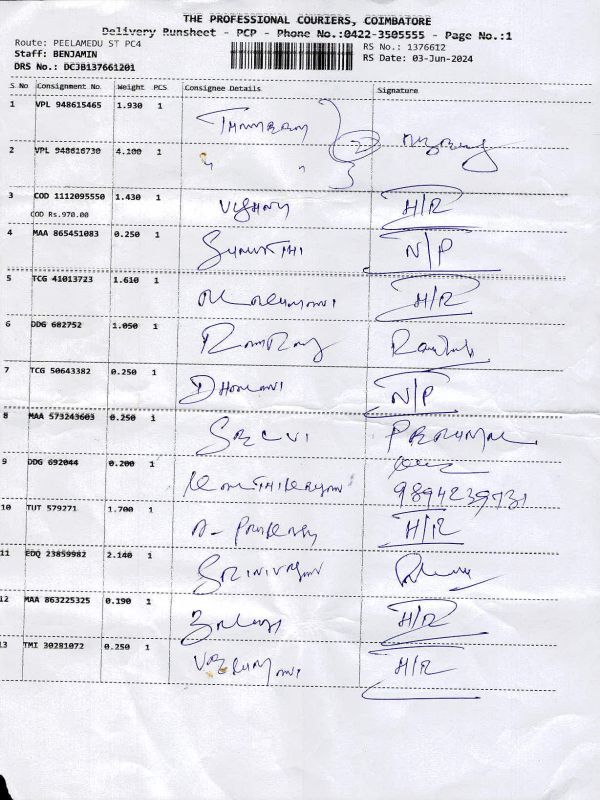 THE PROFESSIONAL COURIERS, COIMBATORE
Delivery Runsheet - PCP - Phone No.:0422-3505555 - Page No.:1
Route: PEELAMEDU ST PC4
RS No.: 1376612
Staff: BENJAMIN
RS Date: 03-Jun-2024
DRS No.: DCJB137661201
S No Consignment No. Weight PCS Consignee Details Signature
1 VPL 948615465 1.930 1
2 VPL 948616730 4.100 1 " "
2
3 COD 1112095550 1.430 1 H/R
COD Rs.970.00
4 MAA 865451083 0.250 1 N/P
5 TCG 41013723 1.610 1 H/R
6 DDG 682752 1.050 1 RamRaj
7 TCG 50643382 0.250 1 N/P
8 MAA 573243603 0.250 1 Selvi PERUMAL
9 DDG 692044 0.200 1 9894239731
10 TUT 579271 1.700 1 H/R
11 EDQ 23859982 2.140 1 SRINIVASAN
12 MAA 863225325 0.190 1 Balaji H/R
13 TMI 30281072 0.250 1 H/R